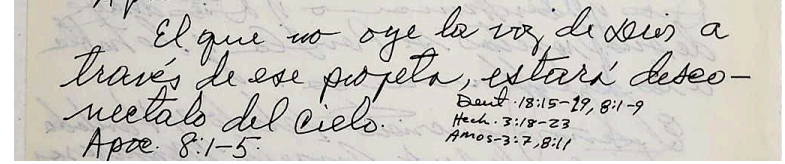 El que no oye la voz de Dios a
través de ese profeta, estará desco-
nectado del cielo.
Deut. 18:15-19, 8:1-9
Hech. 3:18-23
Amos-3:7, 8:11
Apoc. 8:1-5